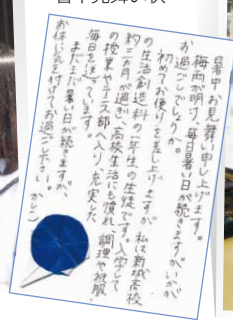 暑中お見舞い申し上げます。
梅雨が明け、毎日暑い日が続きますが、いかが
お過ごしでしょうか。
初めてお便りを差し上げますが、私は新城高校
の生活創造科の一年生の生徒です。入学して
約三か月が過ぎ、高校生活にも慣れ、調理や被服
の授業やテニス部へ入り、充実した
毎日を送っています。
まだまだ暑い日が続きますが、
お体に気を付けてお過ごしください。